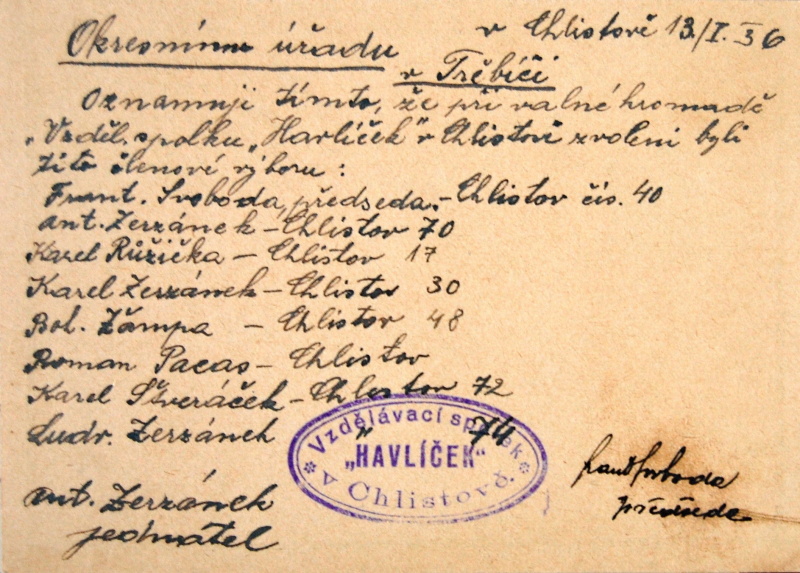 v Chlistově 13/I. 36
Okresnímu úřadu
v Třebíči
Oznamuji tímto, že při valné hromadě
„Vzděl. spolku „Havlíček" v Chlistově zvoleni byli
tito členové výboru:
Frant. Svoboda, předseda, – Chlistov čís. 40
Ant. Zerzánek – Chlistov 70
Karel Růžička – Chlistov 17
Karel Zerzánek – Chlistov 30
Boh. Žámpa – Chlistov 48
Roman Pacas – Chlistov
Karel Štveráček – Chlistov 72
Ludv. Zerzánek " 74
Vzdělávací spolek
„HAVLÍČEK"
v Chlistově.
Frant Svoboda
předseda
Ant. Zerzánek
jednatel